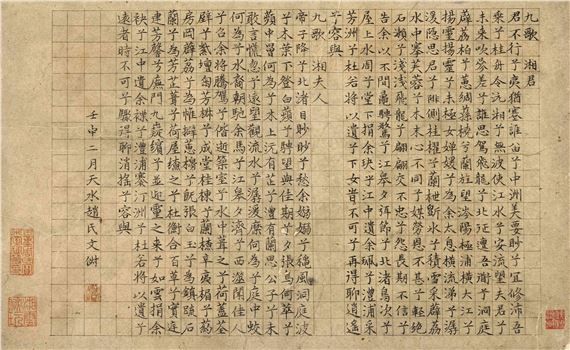 九歌　湘君
君不行兮夷猶蹇誰留兮中洲美要眇兮宜修沛吾
乘兮桂舟令沅湘兮無波使江水兮安流望夫君兮
未來吹參差兮誰思駕飛龍兮北征邅吾道兮洞庭
薜荔柏兮蕙綢蓀橈兮蘭旌望涔陽極浦橫大江兮
揚靈揚靈兮未極女嬋媛兮為余太息橫流涕兮潺
湲隱思君兮陫側桂櫂兮蘭枻斲冰兮積雪采薜荔
水中搴芙蓉兮木末心不同兮媒勞恩不甚兮輕絕
石瀨兮淺淺飛龍兮翩翩交不忠兮怨長期不信兮
告余以不閒鼂騁騖兮江皋夕弭節兮北渚鳥次兮
屋上水周兮堂下捐余玦兮江中遺余佩兮澧浦采
芳洲兮杜若將以遺兮下女昔不可兮再得聊逍遙
兮容與
九歌　湘夫人
帝子降兮北渚目眇眇兮愁余嫋嫋兮秋風洞庭波
兮木葉下登白蘋兮騁望與佳期兮夕張鳥何萃兮
蘋中罾何為兮木上沅有芷兮澧有蘭思公子兮未
敢言慌忽兮遠望觀流水兮潺湲麋何為兮庭中蛟
何為兮水裔朝馳余馬兮江皋夕濟兮西澨聞佳人
兮召余將騰駕兮偕逝築室兮水中葺之兮荷蓋荃
壁兮紫壇匊芳椒兮成堂桂棟兮蘭橑辛夷楣兮葯
房罔薜荔兮為帷擗蕙櫋兮既張白玉兮為鎮疏石
蘭兮為芳芷葺兮荷屋繚之兮杜衡合百草兮實庭
建芳馨兮廡門九嶷繽兮並迎靈之來兮如雲捐余
袂兮江中遺余褋兮澧浦搴汀洲兮杜若將以遺兮
遠者時不可兮驟得聊逍遙兮容與
壬申二月天水趙氏文俶